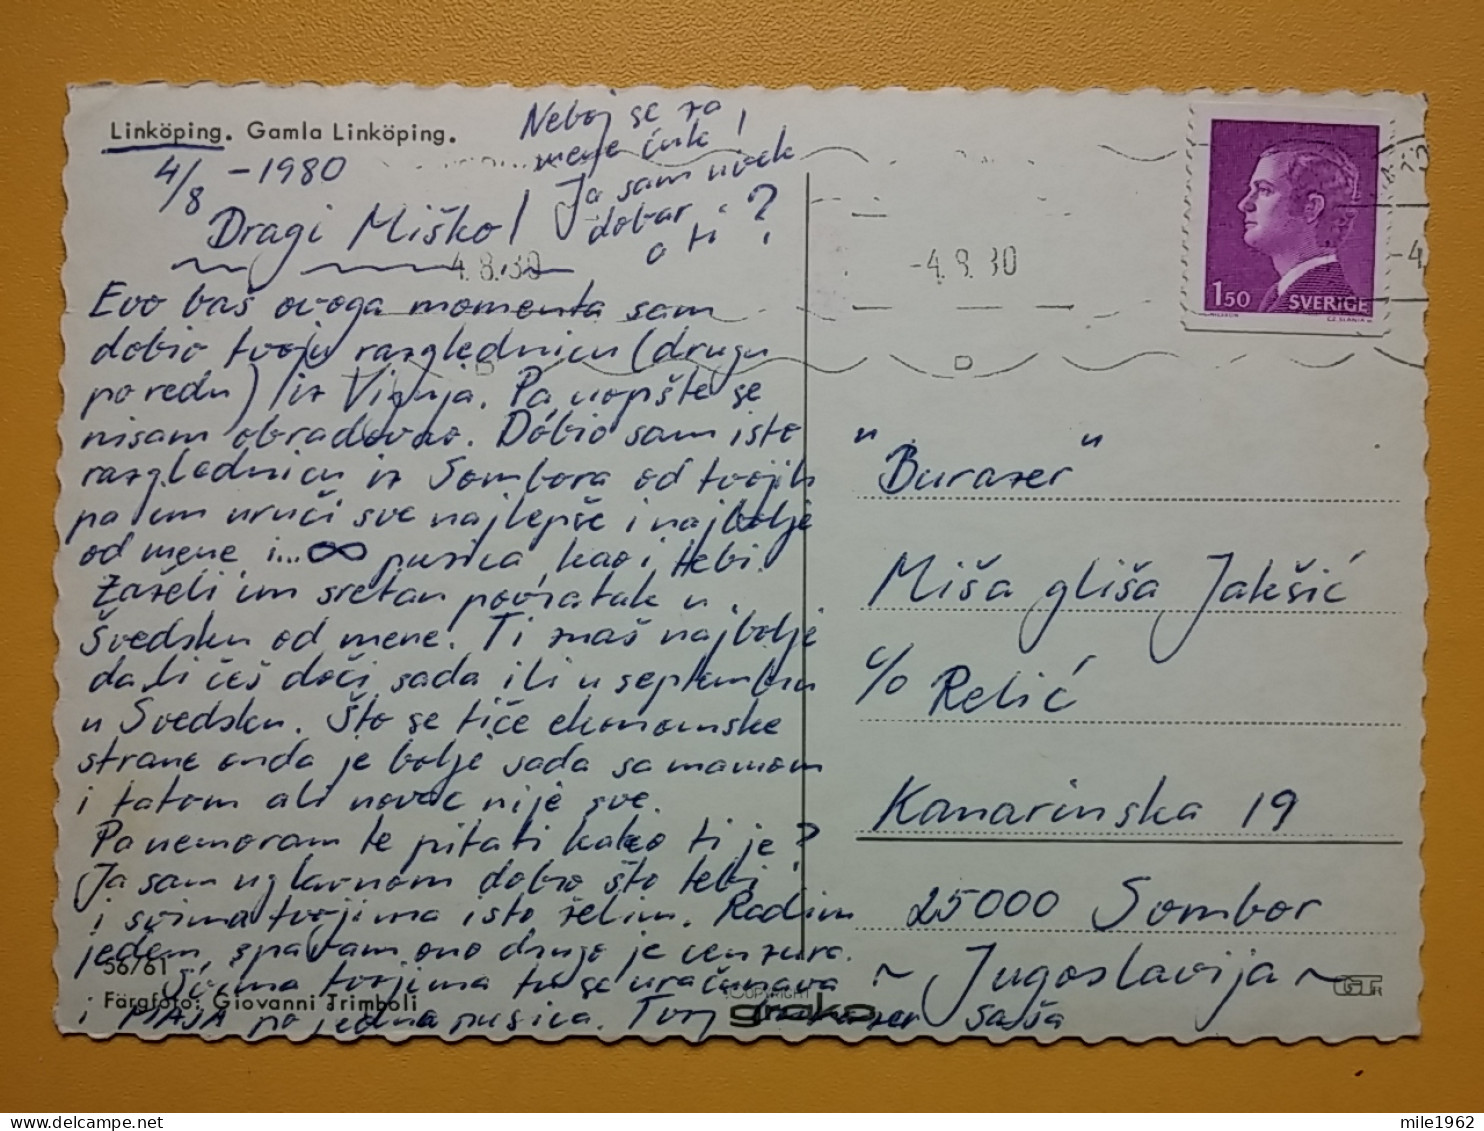 Linköping. Gamla Linköping.
4/8 -1980
Neboj se za
mene ćuk!
Ja sam uvek
dobar
a ti?
Dragi Miško!
4.8.80
-4.8.80
-4
1.50 SVERIGE
Evo baš ovoga momenta sam
dobio tvoju razglednicu (drugu
po redu) iz Višnja. Pa uopšte se
nisam obradovao. Dobio sam isto
razglednicu iz Sombora od tvojih
pa im uruči sve najlepše i najbolje
od mene i...∞ pusica, kao i tebi.
Zaželi im sretan povratak u
Švedsku od mene. Ti znaš najbolje
da li ćeš doći sada ili u septembru
u Švedsku. Što se tiče ekonomske
strane onda je bolje sada sa mamom
i tatom ali novac nije sve.
Pa nemoram te pitati kako ti je?
Ja sam uglavnom dobro što tebi
i svima tvojima isto želim. Radim
jedem, spavam ono drugo je cenzura.
Svima tvojima tu se uračunava
i MAJA po jedna pusica. Tvoj burazer Saša
56/61
Färgfoto: Giovanni Trimboli
COPYRIGHT
grako
"Burazer"
Miša gliša Jakšić
c/o Relić
Kanarinska 19
25000 Sombor
~ Jugoslavija ~
mile1962